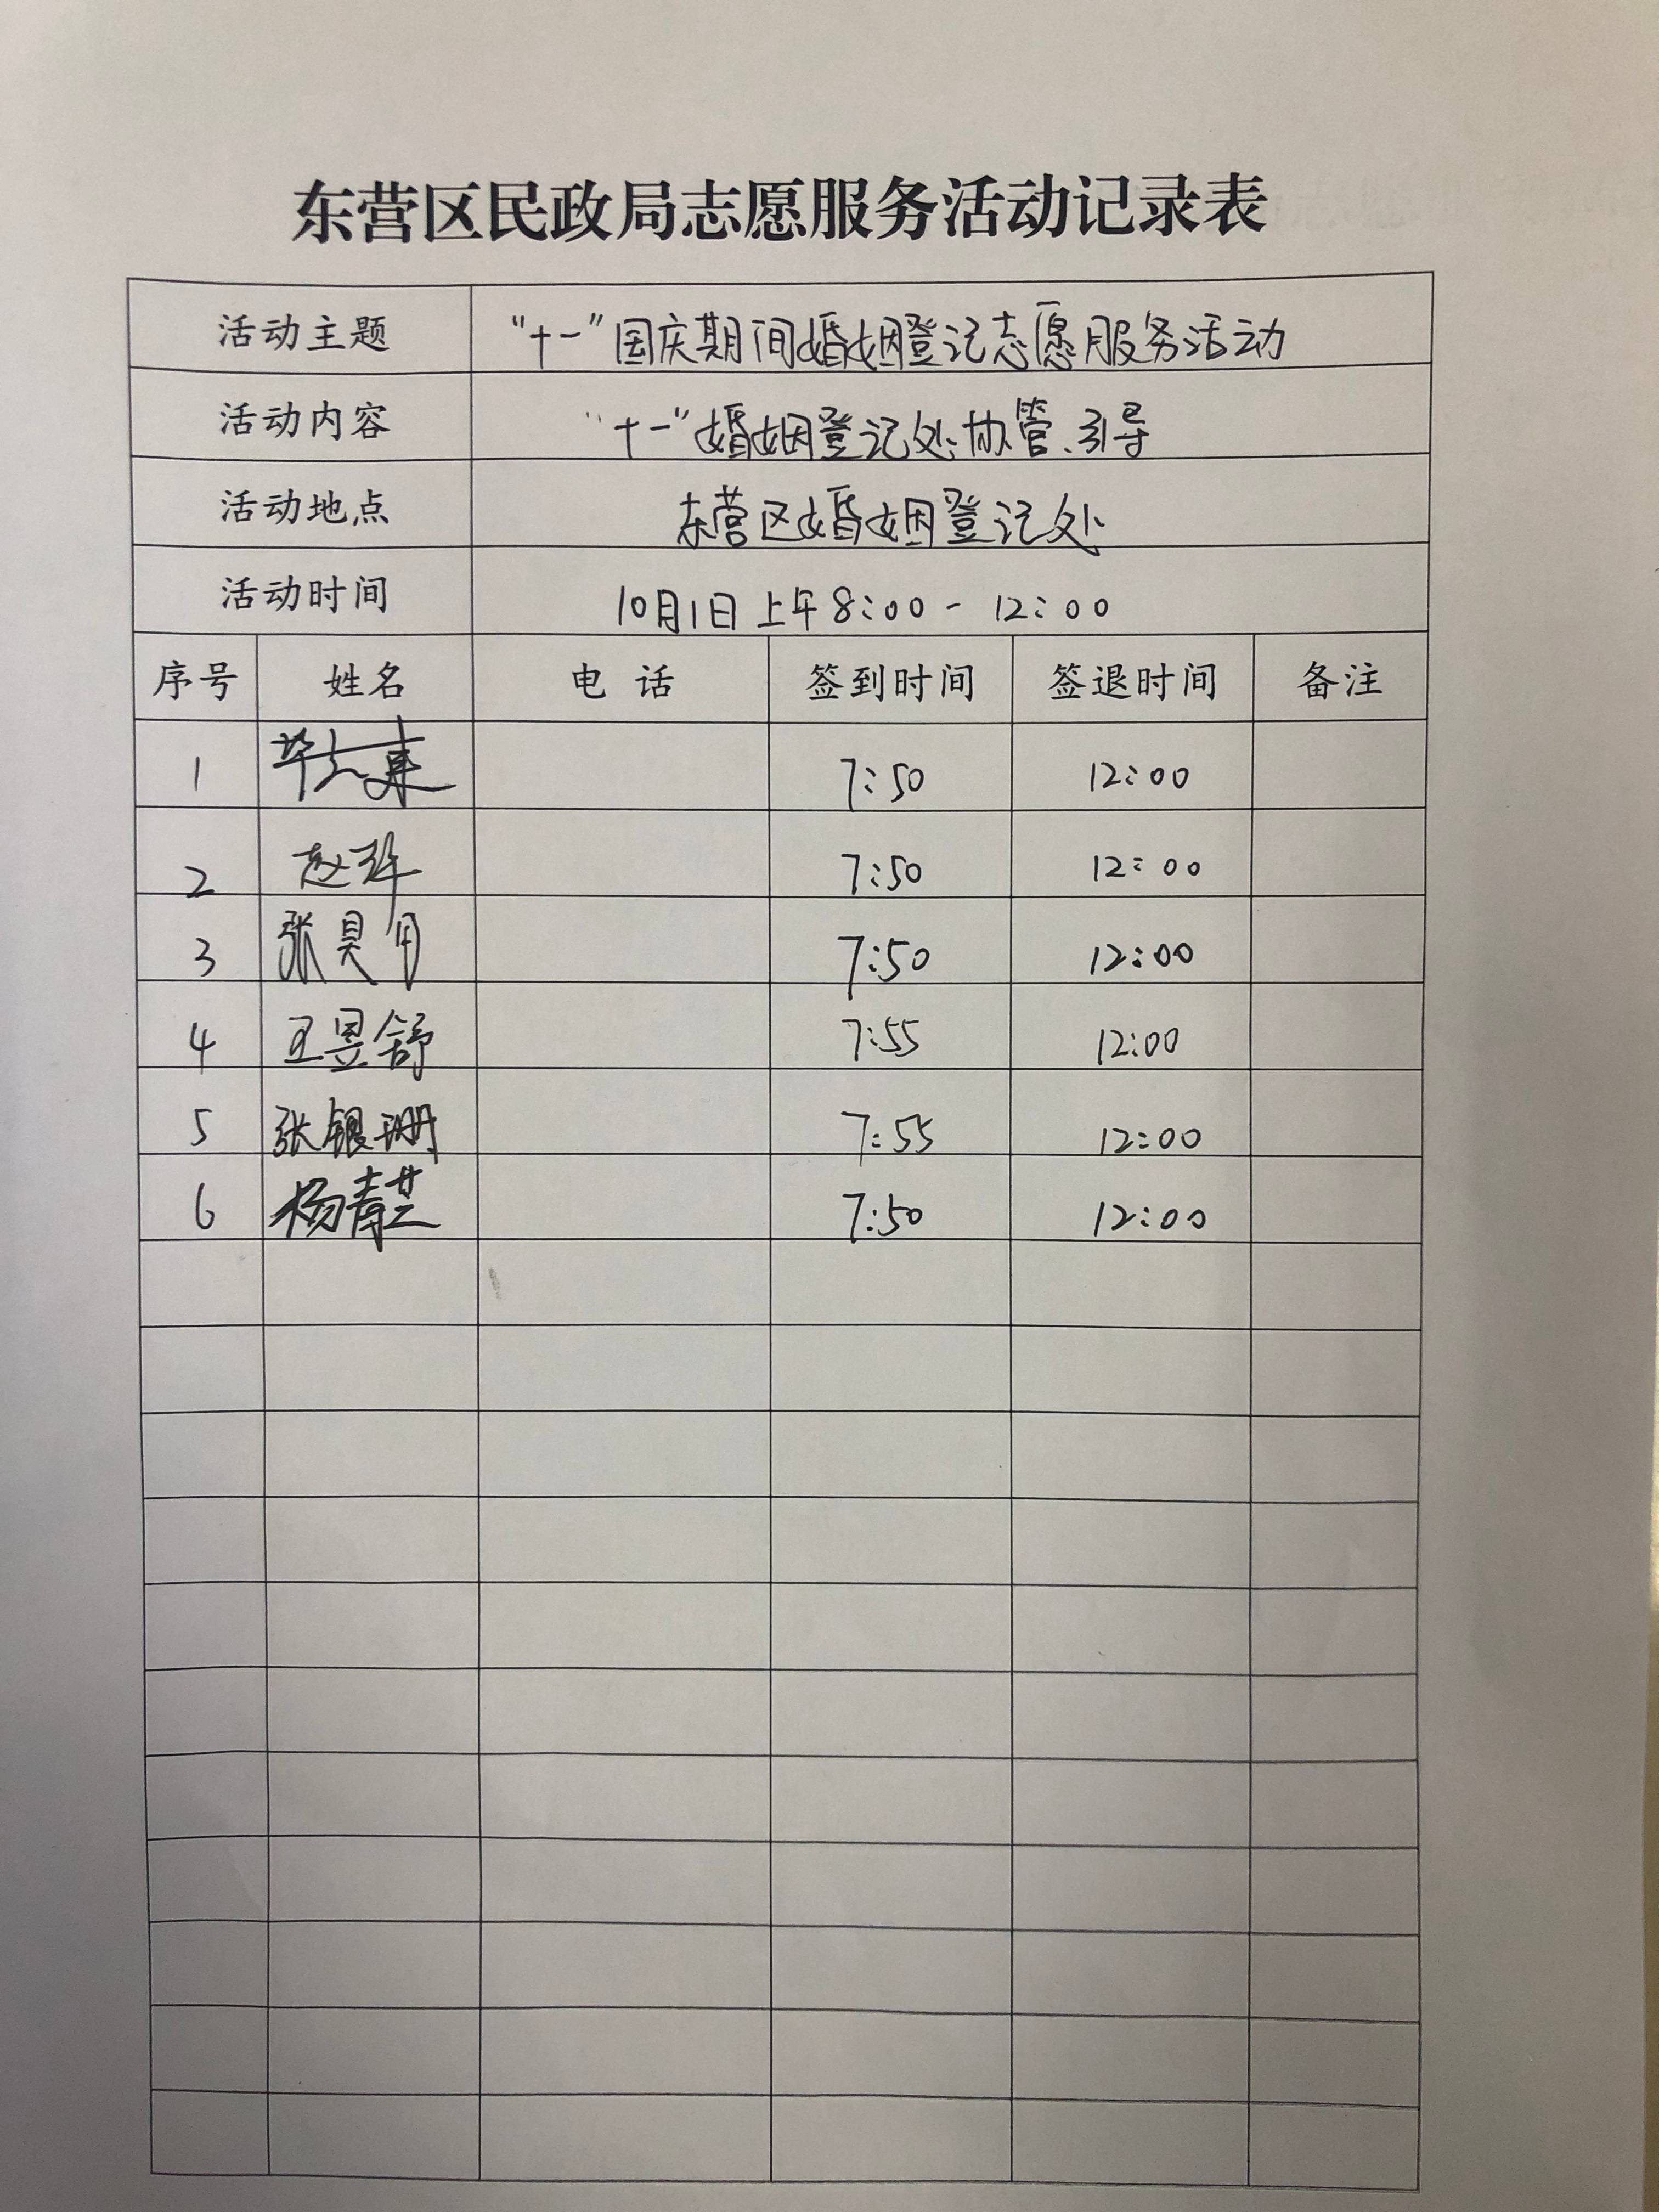 东营区民政局志愿服务活动记录表
活动主题 “十一”国庆期间婚姻登记志愿服务活动
活动内容 “十一”婚姻登记处协管、引导
活动地点 东营区婚姻登记处
活动时间 10月1日上午8:00-12:00
序号 姓名 电话 签到时间 签退时间 备注
1 7:50 12:00
2 赵 7:50 12:00
3 张昊月 7:50 12:00
4 王昱舒 7:55 12:00
5 张银珊 7:55 12:00
6 杨青芸 7:50 12:00